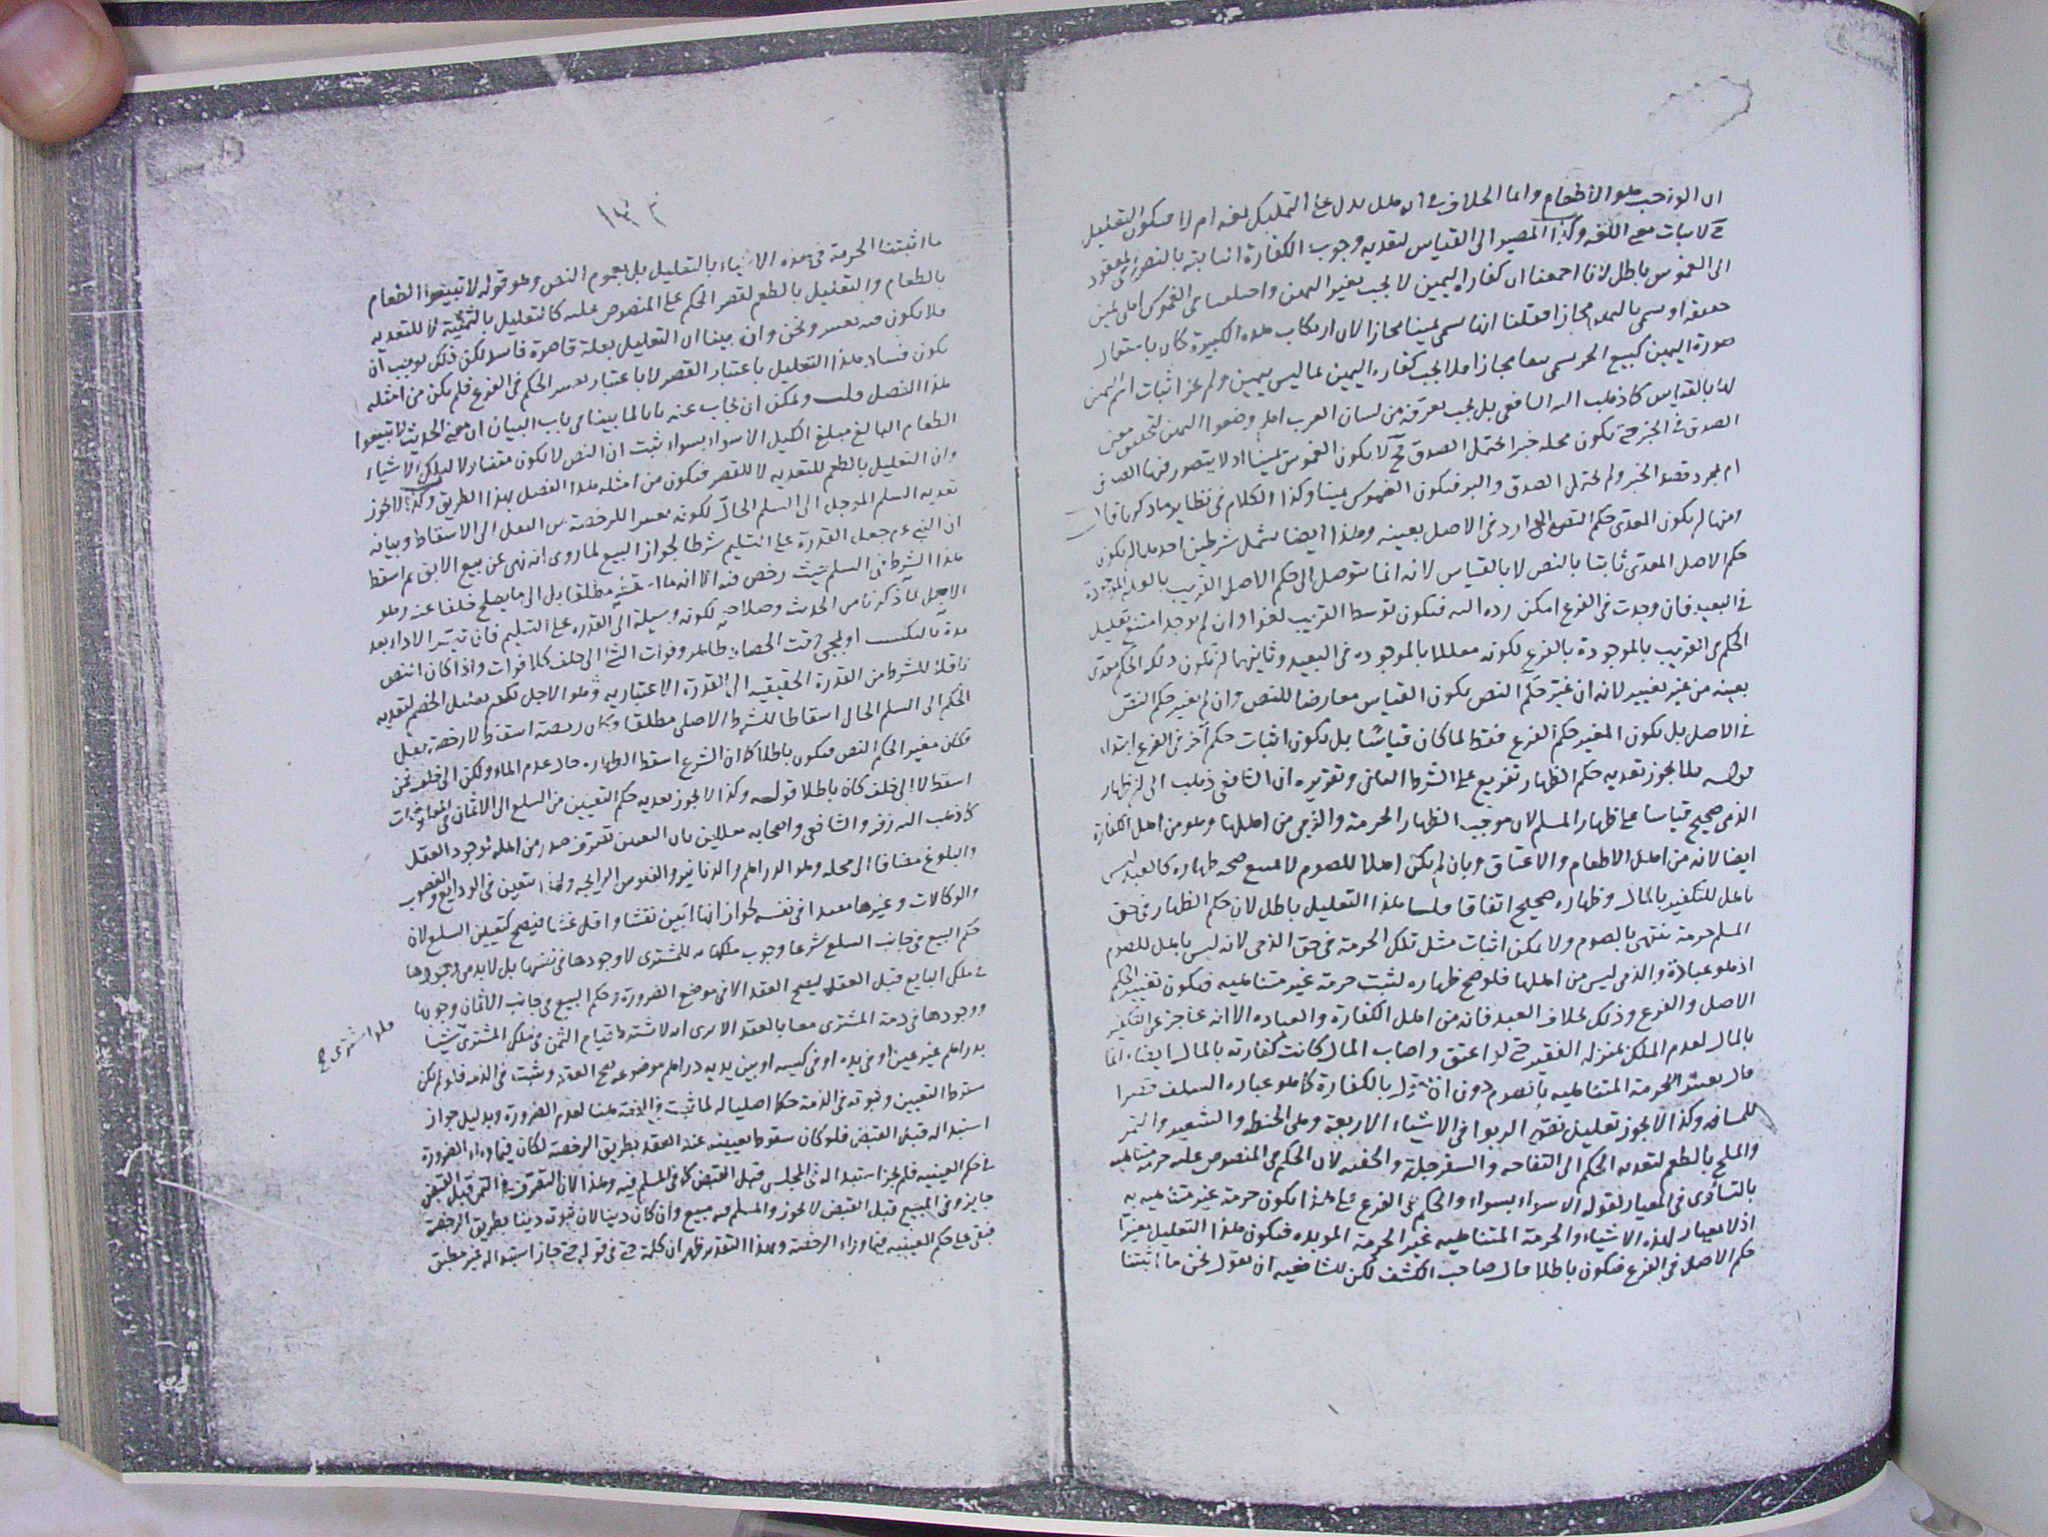 ان الواجب هو الاطعام وانما الخلاف في انه هل يدل على التمليك لغة ام لا فيكون التعليل
لاثبات معنى اللغة وكذا المصير الى القياس لتعدية وجوب الكفارة الثابتة بالنص في المعقودة
الى الغموس باطل لانا اجمعنا ان كفارة اليمين لا تجب بغير اليمين واختلفنا في الغموس اهي يمين
حقيقة او سمي باليمين مجازا فقلنا انها سمي يمينا مجازا لان ارتكاب هذه الكبيرة كان باستعمال
صورة اليمين كبيع الحر سمي بيعا مجازا فلا يجب كفارة اليمين بما ليس بيمين ولم يجز اثبات اسم اليمين
لها بالقياس كما ذهب اليه الشافعي بل يجب تعرفه من لسان العرب اهم وضعوا اليمين لتحقيق معنى
الصدق في الخبر حتى يكون محله خبرا يحتمل الصدق فح لا يكون الغموس يمينا اذ لا يتصور فيها الصدق
ام لمجرد قصد الخبر ولم يحتمل الصدق والبر فيكون الغموس يمينا وكذا الكلام في نظاير ما ذكرنا قال
ومنها ان يكون المعدى حكم النص الوارد في الاصل بعينه وهذا ايضا يشمل شرطين احدهما ان يكون
حكم الاصل المعدى ثابتا بالنص لا بالقياس لانه انما يتوصل الى حكم الاصل القريب بالعلة الموجودة
في البعيد فان وجدت في الفرع امكن رده اليه فيكون توسط القريب لغوا وان لم يوجد امتنع تعليل
الحكم في القريب بالموجودة بالفرع لكونه معللا بالموجودة في البعيد وثانيهما ان يكون ذلك الحكم معدى
بعينه من غير تغيير لانه ان غير حكم النص يكون القياس معارضا للنص وان لم يغير حكم النص
في الاصل بل يكون المغير حكم الفرع فقط لما كان قياسا بل يكون اثبات حكم آخر في الفرع ابتداء
قوله فلا يجوز تعدية حكم الظهار تفريع على الشرط الثاني وتقريره ان الشافعي ذهب الى ان ظهار
الذمي صحيح قياسا على ظهار المسلم لان موجب الظهار الحرمة والذمي من اهلها وهو من اهل الكفارة
ايضا لانه من اهل الاطعام والاعتاق وبان لم يكن اهلا للصوم لا يمنع صحة ظهاره كالعبد ليس
باهل للتكفير بالمال وظهاره صحيح اتفاقا قلنا هذا التعليل باطل لان حكم الظهار في حق
المسلم حرمة تنتهي بالصوم ولا يمكن اثبات مثل تلك الحرمة في حق الذمي لانه ليس باهل للصوم
اذ هو عبادة والذمي ليس من اهلها فلو صح ظهاره لثبت حرمة غير متناهية فيكون تغيير الحكم
الاصل والفرع وذلك بخلاف العبد فانه من اهل الكفارة والعبادة الا انه عاجز عن التكفير
بالمال لعدم الملك بمنزلة الفقير حتى لو اعتق واصاب المال كانت كفارته بالمال ايضا انما
قال بعد الحرمة المتناهية بالصوم دون ان يقول بالكفارة كما هو عبارة السلف
وكذا لا يجوز تعليل نص الربوا في الاشياء الاربعة وهي الحنطة والشعير والتمر
والملح بالطعم لتعدية الحكم الى التفاحة والسفرجلة والحفنة لان الحكم في المنصوص عليه حرمة متناهية
بالتساوي في المعيار لقوله الا سواء بسواء والحكم في الفرع على هذا يكون حرمة غير متناهية به
اذ لا معيار لهذه الاشياء والحرمة المتناهية غير الحرمة المؤبدة فيكون هذا التعليل مغيرا
حكم الاصل في الفرع فيكون باطلا قال صاحب الكشف لكن للشافعية ان يقول نحن ما اثبتنا
١٣٣
ما اثبتنا الحرمة في هذه الاشياء بالتعليل بل بعموم النص وهو قوله لا تبيعوا الطعام
بالطعام والتعليل بالطعم لقصر الحكم على المنصوص عليه كالتعليل بالثمنية لا للتعدية
فلا يكون فيه تغيير ونحن وان بينا ان التعليل بعلة قاصرة فاسد لكن ذلك يوجب ان
يكون فساد هذا التعليل باعتبار القصر لا باعتبار تغيير الحكم في الفرع فلم يكن من امثلة
هذا الفصل قلت ويمكن ان يجاب عنه بانا لما بينا في باب البيان ان معنى الحديث لا تبيعوا
الطعام البالغ مبلغ الكيل الا سواء بسواء ثبت ان النص لا يكون متناولا لتلك الاشياء
وان التعليل بالطعم للتعدية لا للقصر فيكون من امثلة هذا الفصل بهذا الطريق وكذا لا يجوز
تعدية السلم المؤجل الى السلم الحال لكونه مغيرا للرخصة من النقل الى الاسقاط وبيانه
ان النبي عم جعل القدرة على التسليم شرطا لجواز البيع لما روى انه نهى عن بيع الابق ثم اسقط
هذا الشرط في السلم حيث رخص فيه الا انه ما اسقطه مطلقا بل الى ما يصلح خلفا عنه وهو
الاجل لما ذكرنا من الحديث وصلاحه لكونه وسيلة الى القدرة على التسليم فان تيسر الاداء بعد
مدة بالكسب او لمجيء وقت الحصاد ظاهر وفوات الشيء الى خلف كلا فوات واذا كان النص
ناقلا للشرط من القدرة الحقيقية الى القدرة الاعتبارية وهو الاجل لكن تعليل الخصم لتعدية
الحكم الى السلم الحال اسقاطا للشرط الاصلي مطلقا وكان رخصة اسقاط لا رخصة نقل
فكان مغيرا لحكم النص فيكون باطلا كما ان الشرع اسقط الطهارة حال عدم الماء ولكن الى خلف فمن
اسقط لا الى خلف كان باطلا قوله وكذا لا يجوز تعدية حكم التعيين من السلع الى الاثمان في المعاوضات
كما ذهب اليه زفر والشافعي واصحابه معللين بان التعيين تصرف صدر من اهله لوجود العقل
والبلوغ مضافا الى محله وهو الدراهم والدنانير والفلوس الرايجة ولهذا يتعين في الودايع والغصوب
والوكالات وغيرها مفيدا في نفسه لجواز انها ابين نقشا واقل غشا فيصح كتعيين السلع لان
حكم البيع في جانب السلع شرعا وجوب ملكها به للمشتري لا وجودها في نفسها بل لابد من وجودها
في ملك البايع قبل العقد ليصح العقد الا في موضع الضرورة وحكم البيع في جانب الاثمان وجوبها
ووجودها في ذمة المشتري معا بالعقد الا يرى انه لا يشترط قيام الثمن في ملك المشتري شيئا
فلو اشترى صح
بدراهم غير عين او في يده او في كيسه او بين يديه دراهم موضوعة صح العقد ويثبت في الذمة فلو لم يكن
سقوط التعيين وثبوته في الذمة حكما اصليا له لما ثبت في الذمة ههنا لعدم الضرورة وبدليل جواز
استبداله قبل القبض فلو كان سقوط تعيينه عند العقد بطريق الرخصة لكان فيما وراء الضرورة
في حكم العينية فلم يجز استبداله في المجلس قبل القبض كما في المسلم فيه وهذا لان التصرف في الثمن قبل القبض
جايز وفي المبيع قبل القبض لا يجوز والمسلم فيه مبيع وان كان دينا لان ثبوته دينا بطريق الرخصة
فبقي على حكم العينية فيما وراء الرخصة وبهذا التقرير ظهر ان كلمة حتى في قوله حتى جاز استبداله غير مطبق